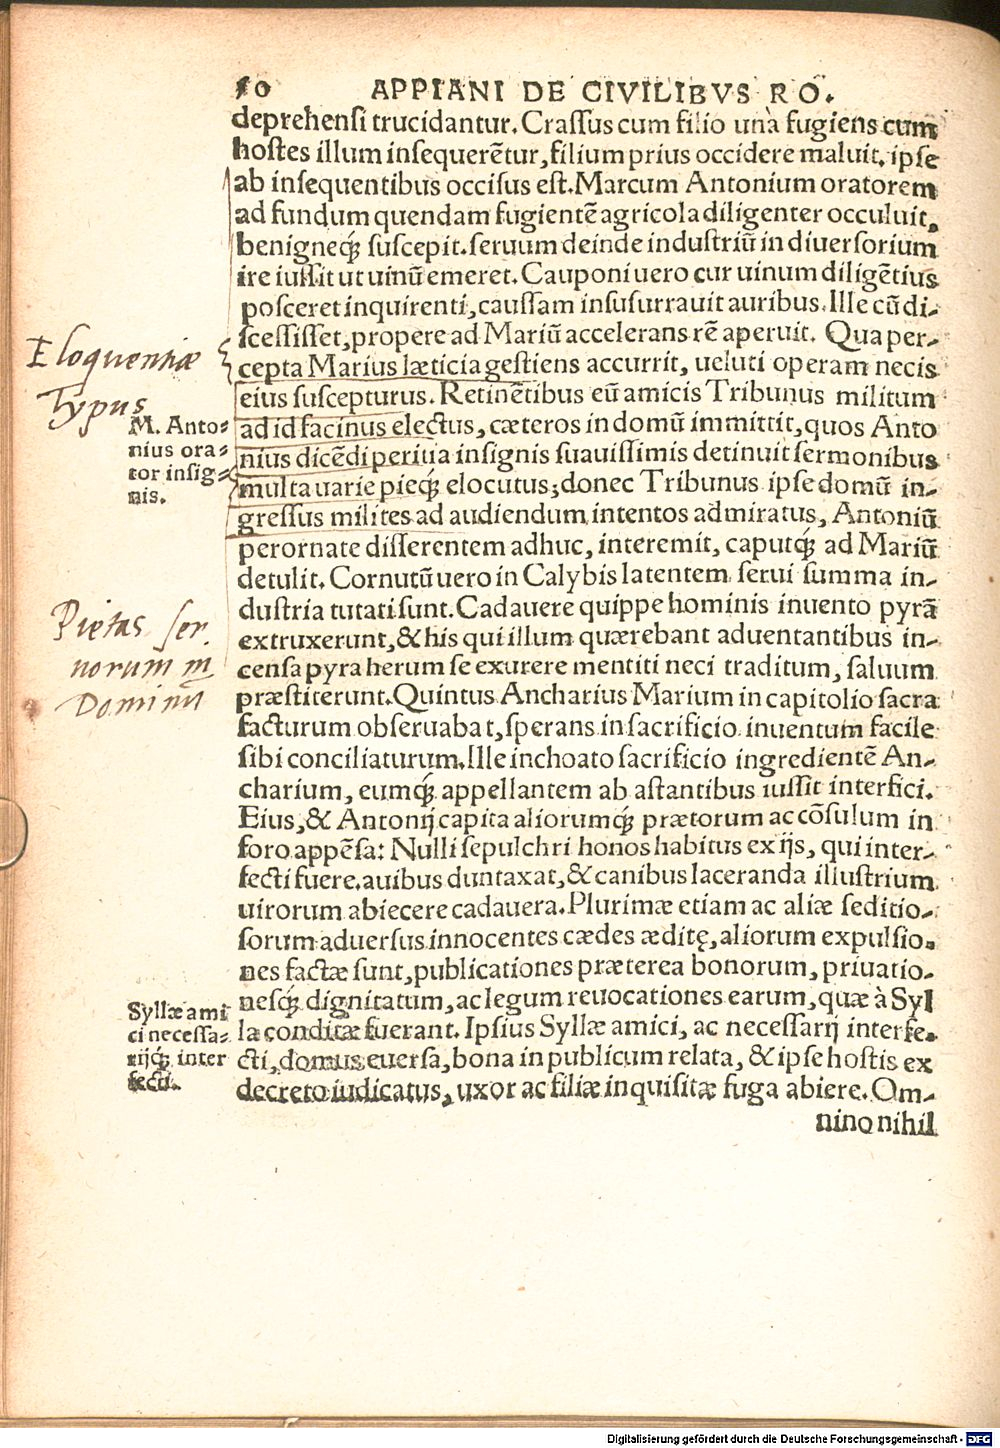 50 APPIANI DE CIVILIBVS RO.
deprehensi trucidantur. Crassus cum filio unà fugiens cum
hostes illum insequerẽtur, filium prius occidere maluit, ipse
ab insequentibus occisus est. Marcum Antonium oratorem
ad fundum quendam fugientẽ agricola diligenter occuluit,
benigneq́; suscepit. seruum deinde industriũ in diuersorium
ire iussit ut uinũ emeret. Cauponi uero cur uinum diligẽtius
posceret inquirenti, caussam insusurrauit auribus. Ille cũ di-
scessisset, propere ad Mariũ accelerans rẽ aperuit. Qua per-
cepta Marius læticia gestiens accurrit, ueluti operam necis
eius suscepturus. Retinẽtibus eũ amicis Tribunus militum
ad id facinus electus, cæteros in domũ immittit, quos Anto
nius dicẽdi peritia insignis suauissimis detinuit sermonibus
multa uarie pieq́; elocutus; donec Tribunus ipse domũ in-
gressus milites ad audiendum intentos admiratus, Antoniũ
perornate disserentem adhuc, interemit, caputq́; ad Mariũ
detulit. Cornutũ uero in Calybis latentem serui summa in-
dustria tutati sunt. Cadauere quippe hominis inuento pyrã
extruxerunt, & his qui illum quærebant aduentantibus in-
censa pyra herum se exurere mentiti neci traditum, saluum
præstiterunt. Quintus Ancharius Marium in capitolio sacra
facturum obseruabat, sperans in sacrificio inuentum facile
sibi conciliaturum. Ille inchoato sacrificio ingredientẽ An-
charium, eumq́; appellantem ab astantibus iussit interfici.
Eius, & Antonij capita aliorumq́; prætorum ac cõsulum in
foro appẽsa: Nulli sepulchri honos habitus ex ijs, qui inter-
fecti fuere. auibus duntaxat, & canibus laceranda illustrium
uirorum abiecere cadauera. Plurimæ etiam ac aliæ seditio-
sorum aduersus innocentes cædes æditę, aliorum expulsio-
nes factæ sunt, publicationes præterea bonorum, priuatio-
nesq́; dignitatum, ac legum reuocationes earum, quæ à Syl
la conditæ fuerant. Ipsius Syllæ amici, ac necessarij interfe-
cti, domus euersa, bona in publicum relata, & ipse hostis ex
decreto iudicatus, uxor ac filiæ inquisitæ fuga abiere. Om-
nino nihil
Eloquentiæ
Typus
M. Anto-
nius ora-
tor insig-
nis.
Pietas ser
uorum in
Dominũ
Syllæ ami
ci necessa-
rijq́; inter
fecti.
Digitalisierung gefördert durch die Deutsche Forschungsgemeinschaft - DFG